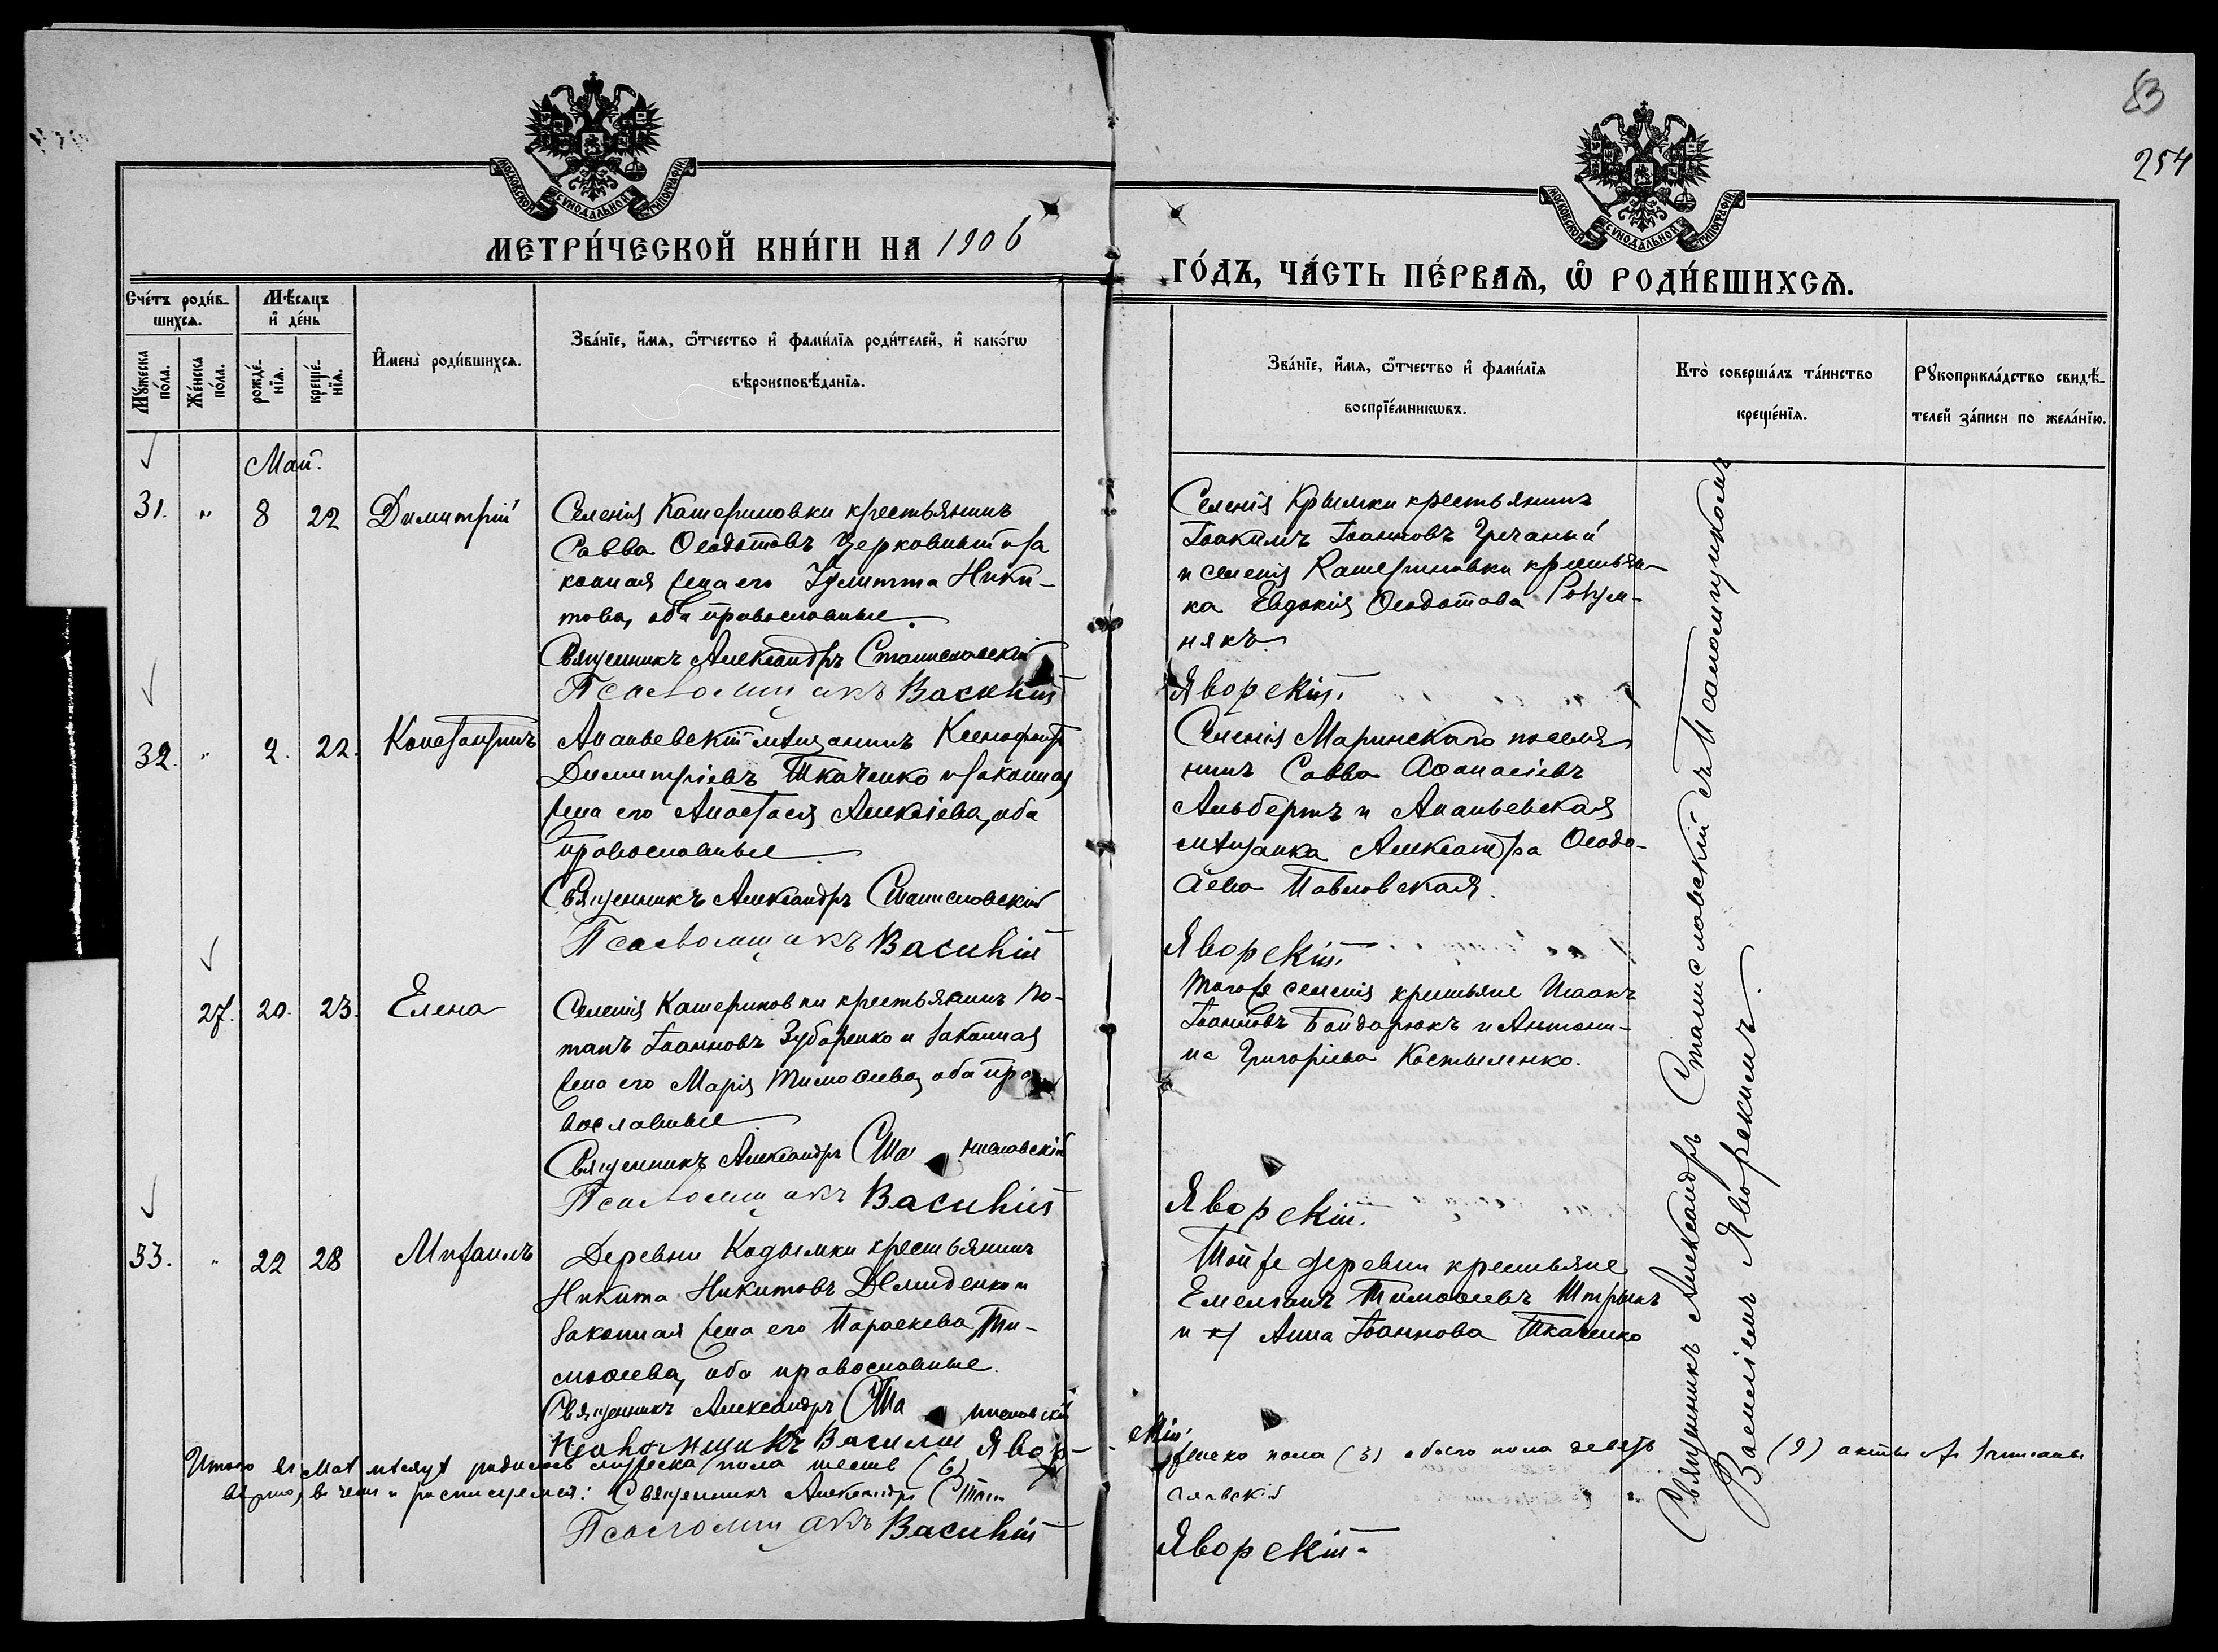 83
254
МОСКОВСКОЙ СѴНОДАЛЬНОЙ ТИПОГРАФІИ
МОСКОВСКОЙ СѴНОДАЛЬНОЙ ТИПОГРАФІИ
МЕТРИ́ЧЕСКОЙ КНИ́ГИ НА 1906
ГО́ДЪ, ЧА́СТЬ ПЕ́РВАѦ, Ѡ РОДИ́ВШИХСѦ.
Сче́тъ роди́в-
шихсѧ.
Мѣ́сѧцъ
и де́нь
Мꙋ́жеска
по́ла.
Же́нска
по́ла.
рожде́-
нїѧ.
креще́-
нїѧ.
Имена̀ роди́вшихсѧ.
Зва́нїе, и́мѧ, ѻ́тчество и фами́лїѧ роди́телей, и како́гѡ
вѣроисповѣ́данїѧ.
Зва́нїе, и́мѧ, ѻ́тчество и фами́лїѧ
воспрїе́мникѡвъ.
Кто̀ соверша́лъ та́инство
креще́нїѧ.
Рꙋкоприкла́дство свидѣ́-
телей за́писи по жела́нїю.
Май.
31. " 8 22 Димитрій
Селенія Катериновки крестьянинъ
Савва Ѳеодотовъ Церковный и за
конная жена его Іулитта Ники-
това, оба православные.
Священникъ Александръ Станиславскій
Псаломщикъ Василій
Селенія Крымки крестьянинъ
Іоакимъ Іоанновъ Гречаный
и селенія Катериновки крестьян-
ка Евдокія Ѳеодотова
някъ.
Яворскій.
32. " 2. 22. Константинъ
Ананьевскій мѣщанинъ Ксенофонтъ
Димитріевъ Ткаченко и законная
жена его Анастасія Алексіева, оба
православные.
Священникъ Александръ Станиславскій
Псаломщикъ Василій
Селенія Маринскаго поселя
нинъ Савва Аѳанасіевъ
Альбертъ и Ананьевская
мѣщанка Александра Ѳеодо-
сіева Павловская.
Яворскій.
27. 20. 23. Елена
Селенія Катериновки крестьянинъ По-
тапъ Іоанновъ Зубаренко и законная
жена его Марія Тимоѳеева, оба пра
вославные.
Священникъ Александръ Станиславскій
Псаломщикъ Василій
Тогоже селенія крестьяне Исаакъ
Іоанновъ Бондарюкъ и Антони-
на Григоріева Костыленко.
Яворскій.
33. " 22 28 Михаилъ
Деревни Кадымки крестьянинъ
Никита Никитовъ Демиденко и
законная жена его Параскева Ти-
моѳеева, оба православные.
Священникъ Александръ Станиславскій
Псаломщикъ Василій Явор-
Тойже деревни крестьяне
Емеліанъ Тимоѳеевъ Штрыкъ
и Анна Іоаннова Ткаченко
скій.
Священникъ Александръ Станиславскій съ Псаломщикомъ
Василіемъ Яворскимъ.
Итого въ маѣ мѣсяцѣ родилось мужеска пола шесть (6)
женско пола (3) обоего пола девять (9) акты
вѣрно, въ чемъ и росписуемся: Священникъ Александръ Стани
славскій
Псаломщикъ Василій
Яворскій.